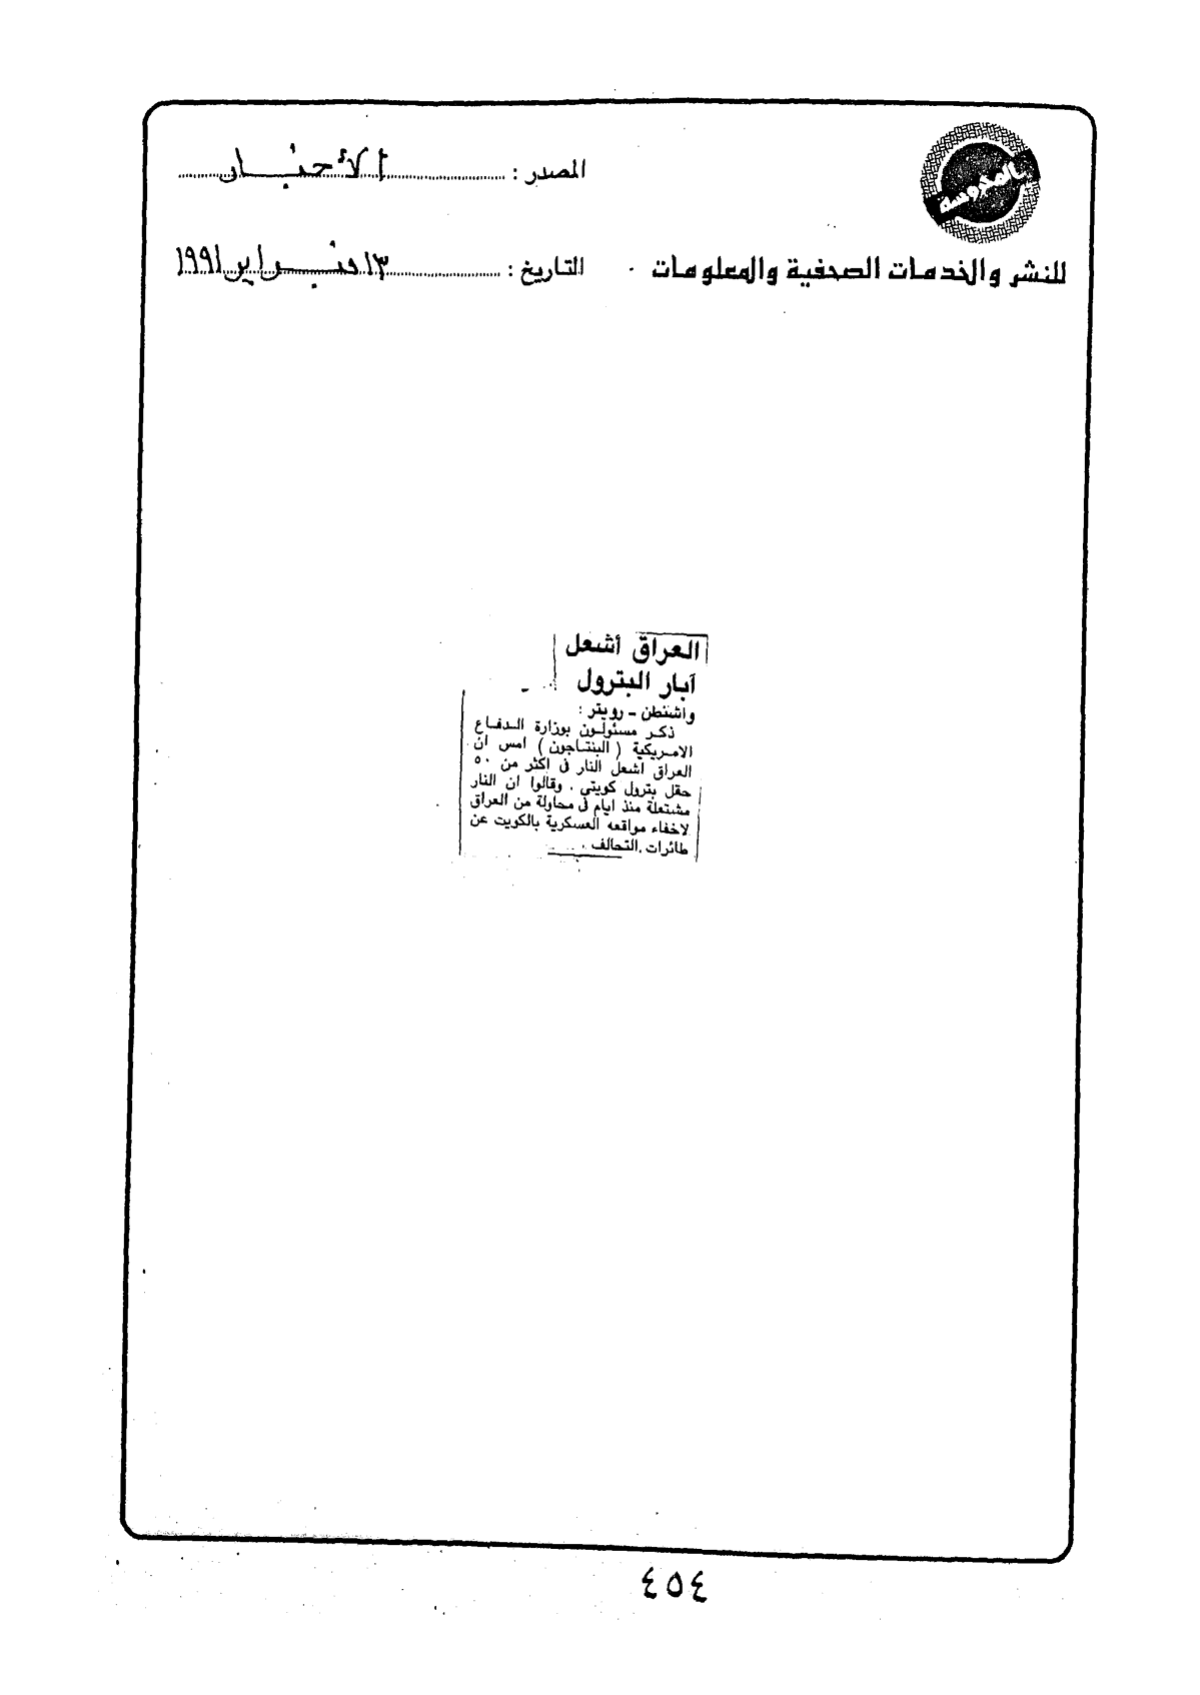 المحروسة
للنشر والخدمات الصحفية والمعلومات
المصدر : الأخبار
التاريخ : ١٣ فبراير ١٩٩١
العراق أشعل
آبار البترول
واشنطن - رويتر :
ذكر مسئولون بوزارة الدفاع
الامريكية ( البنتاجون ) امس ان
العراق اشعل النار فى اكثر من ٥٠
حقل بترول كويتي . وقالوا ان النار
مشتعلة منذ ايام فى محاولة من العراق
لاخفاء مواقعه العسكرية بالكويت عن
طائرات التحالف .
٤٥٤